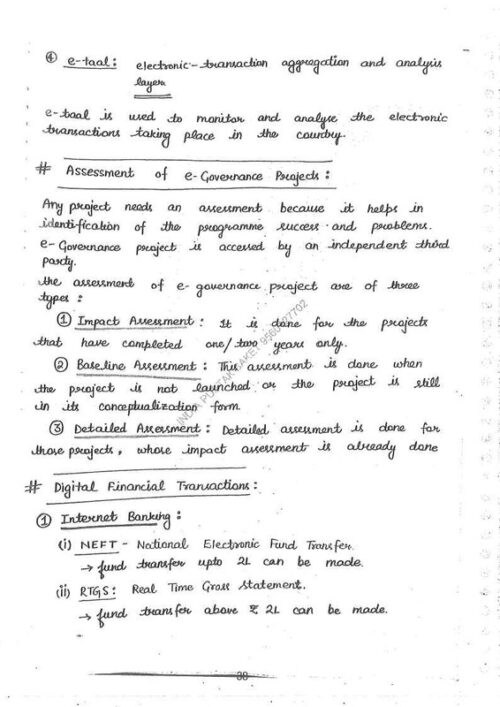 ④ e-taal: electronic-transaction aggregation and analysis
layer.
e-taal is used to monitor and analyse the electronic
transactions taking place in the country.
# Assessment of e-Governance Projects:
Any project needs an assessment because it helps in
identification of the programme success and problems.
e-Governance project is accessed by an independent third
party.
the assessment of e-governance project are of three
types:
① Impact Assessment: It is done for the projects
that have completed one/two years only.
② Baseline Assessment: This assessment is done when
the project is not launched or the project is still
in its conceptualization form.
③ Detailed Assessment: Detailed assessment is done for
those projects, whose impact assessment is already done
# Digital Financial Transactions:
① Internet Banking:
(i) NEFT - National Electronic Fund Transfer.
→ fund transfer upto 2L can be made.
(ii) RTGS: Real Time Gross Statement.
→ fund transfer above ₹ 2L can be made.
38